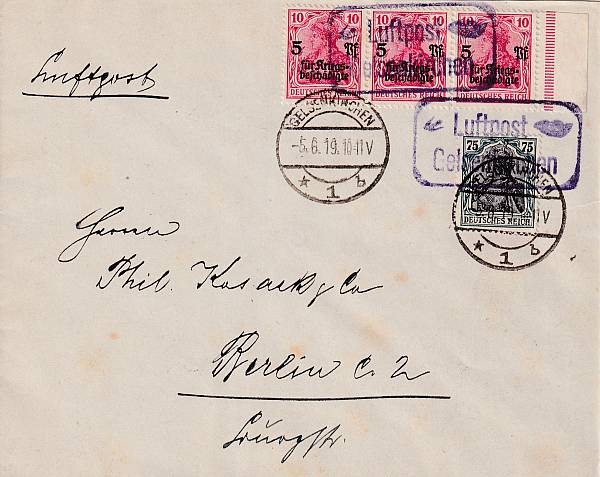 Luftpost
10 10 10 10 10 10
5 Pf 5 Pf 5 Pf
für Kriegs- für Kriegs- für Kriegs-
beschädigte beschädigte beschädigte
DEUTSCHES REICH DEUTSCHES REICH DEUTSCHES REICH
Luftpost
GELSENKIRCHEN
-5.6.19.10-11V
* 1 b
Luftpost
Gelsenkirchen
75 75
DEUTSCHES REICH
GELSENKIRCHEN
11V
* 1 b
Herrn
Phil. Kosack & Co
Berlin C. 2